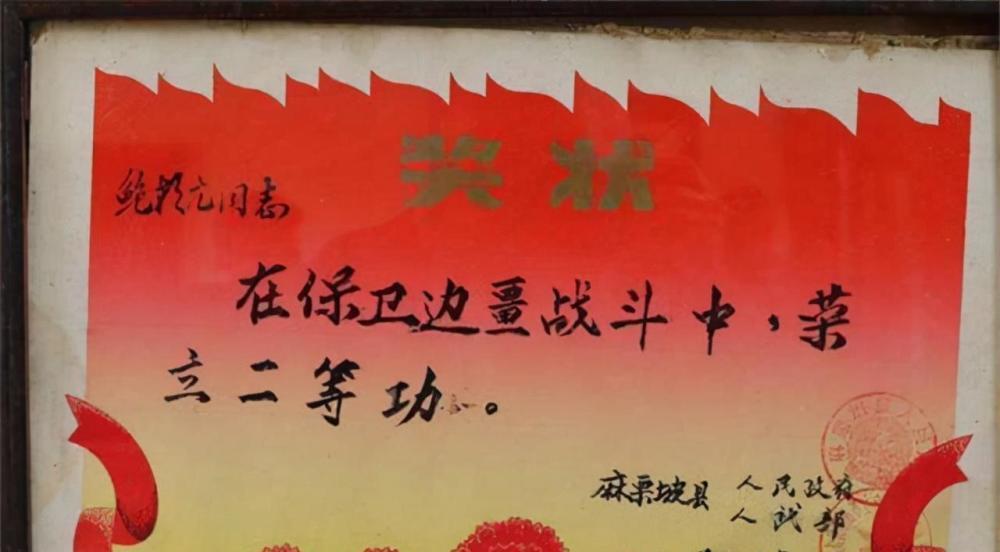 奖状
鲍朝元同志
在保卫边畺战斗中，荣
立二等功。
麻栗坡县 人民政府
人武部